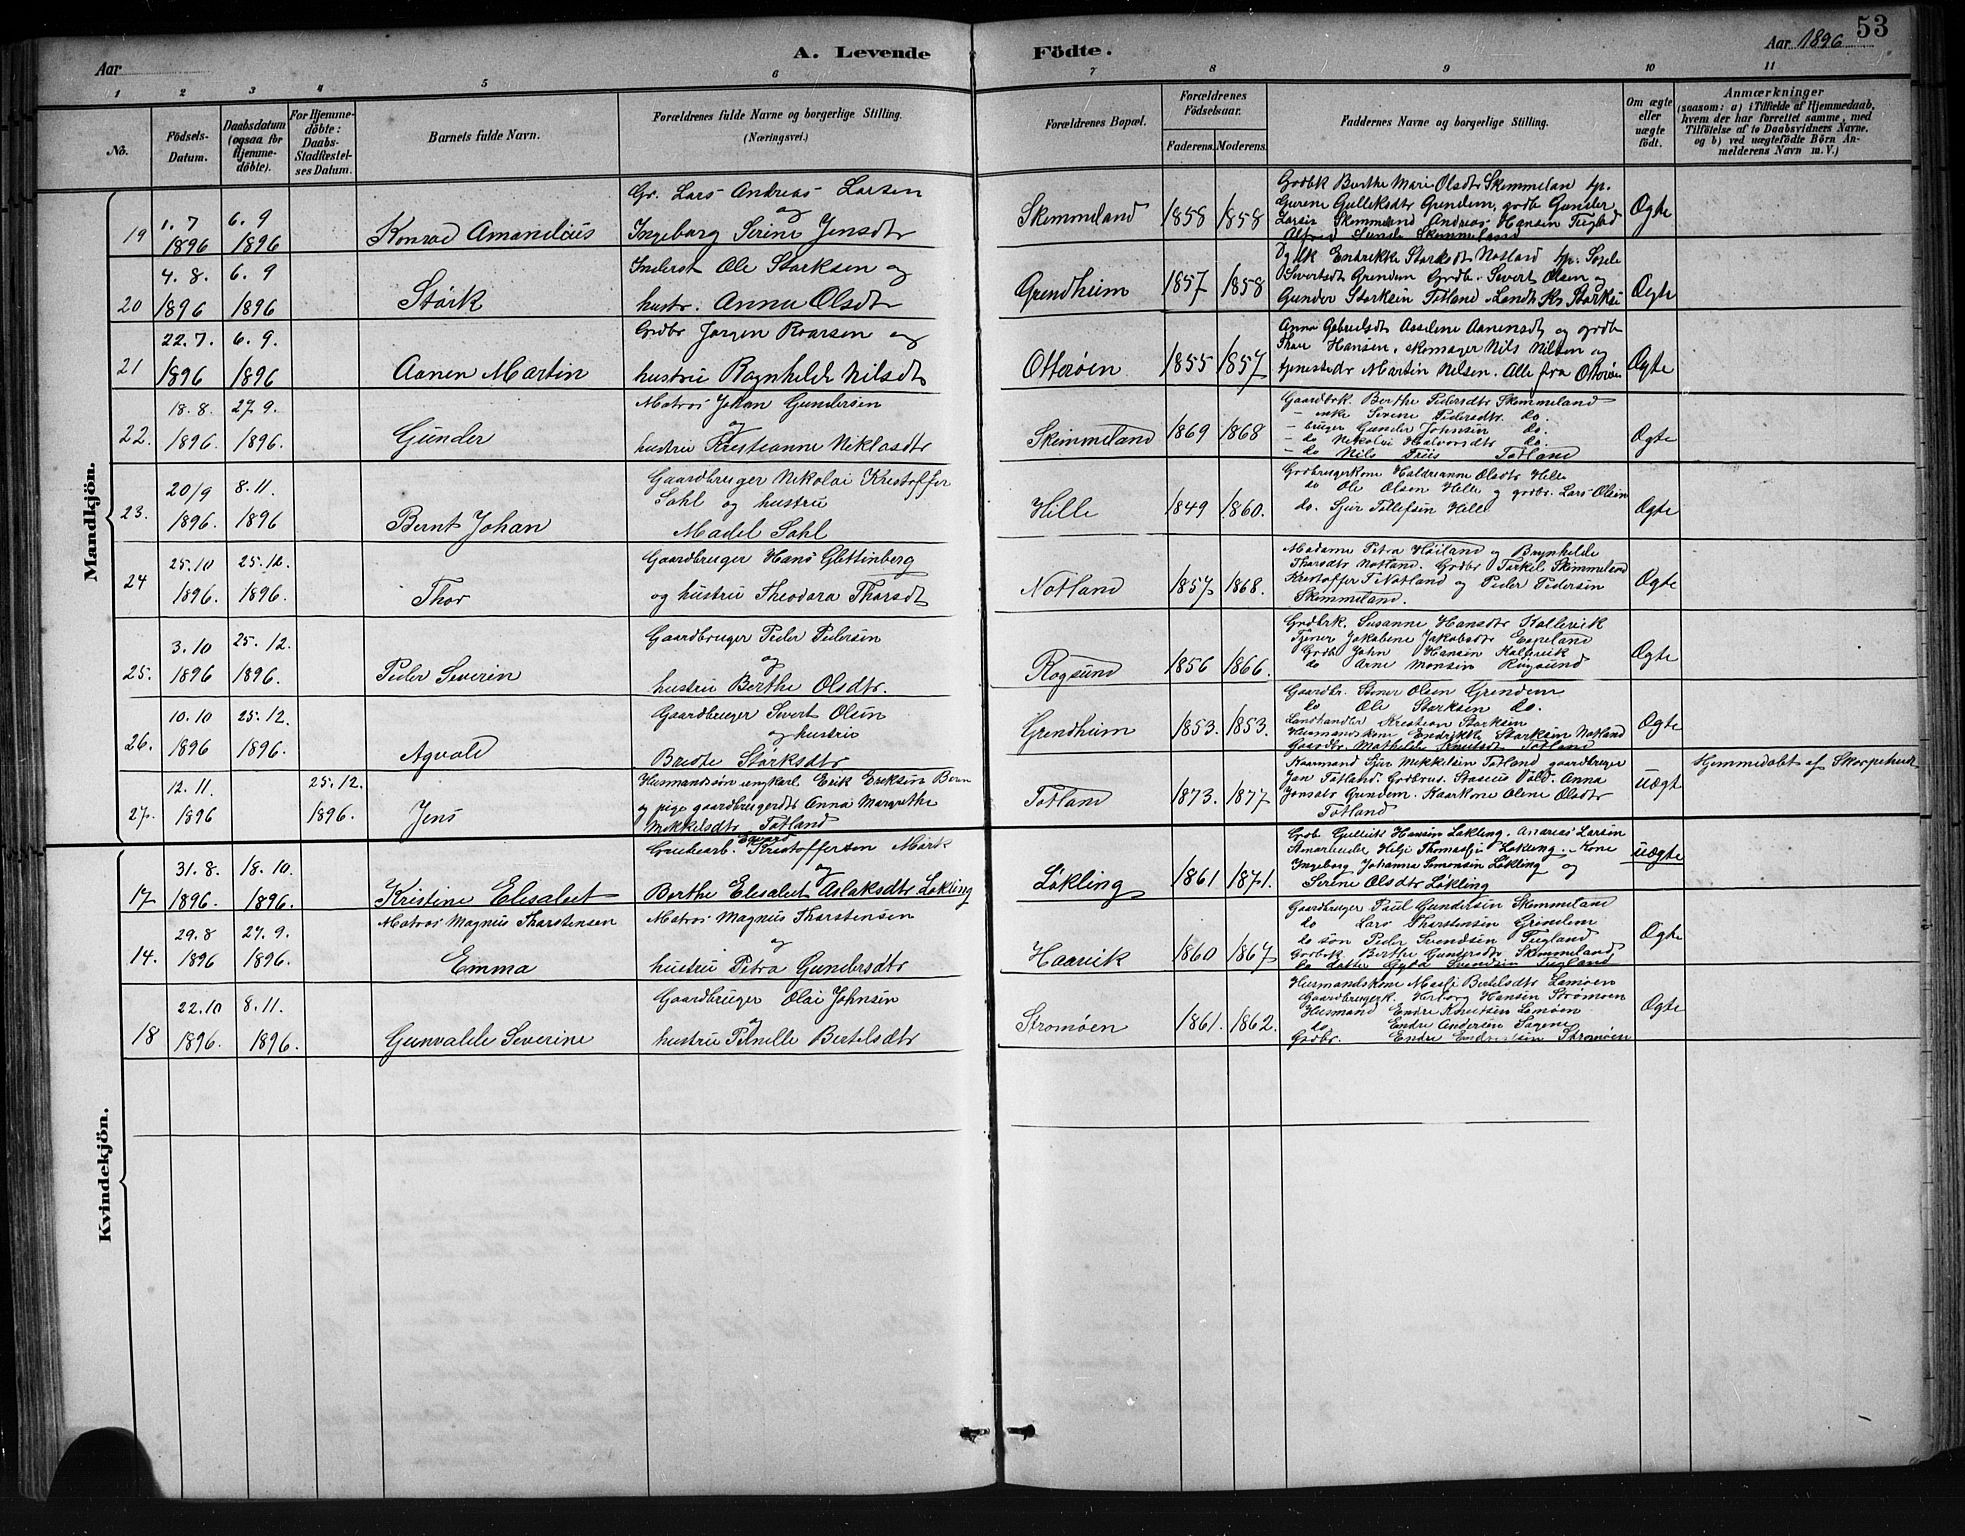 53
Aar
A. Levende
Födte.
Aar 1896
1 2 3 4 5 6 7 8 9 10 11
No.
Födsels-Datum.
Daabsdatum (ogsaa for Hjemmedöbte).
For Hjemmedöbte: Daabs-Stadfæstelses Datum.
Barnets fulde Navn.
Forældrenes fulde Navne og borgerlige Stilling. (Næringsvei.)
Forældrenes Bopæl.
Forældrenes Födselsaar.
Faderens. Moderens.
Faddernes Navne og borgerlige Stilling.
Om ægte eller uægte födt.
Anmærkninger
(saasom: a) i Tilfælde af Hjemmedaab, hvem der har forrettet samme, med Tilföielse af to Daabsvidners Navne. og b) ved uægtefödte Börn Anmelderens Navn m. V.)
Mandkjön.
19
1. 7 1896
6. 9 1896
Konrad Amandeus
Gr. Lars Andreas Larsen
og
Ingeborg Serine Jensdtr
Skemmeland
1858 1858
Grdbk Berthe Marie Olsdtr Skemmelan
Gurene Gulleksdtr Grendem, grdb Gunder
Larsen Skemmeland Andreas Hansen
Alfred Skemmeland
Ægte
20
4. 8. 1896
6. 9 1896
Störk
Inderst Ole Storksen og
hustr. Anna Olsdtr
Grendheim
1857 1858
Endrikke Starksdt Natland
Sivertsdt Grendem Grdb. Severt Olsen og
Gunder Storksen Totland Landh. Kr. Storksen
Ægte
21
22. 7. 1896
6. 9. 1896
Aanen Martin
Grdbr Jørgen Roarsen og
hustru Ragnhilde Nilsdt
Otterøen
1855 1857
Anna Gabrielsdt Asseline Aanensdt og grdb
Thore Hansen, skomager Nils Nilsen og
tjenestedr Martin Nilsen. Alle fra Otterøen
Ægte
22.
18. 8. 1896.
27. 9. 1896.
Gunder
Matros Johan Gundersen
og
hustru Kristianne Niklasdtr
Skemmeland
1869 1868
Gaardbrk. Berthe Pedersdtr Skemmeland
– enke Serene Pedersdtr. do
– bruger Gunder Johnsen do.
– do Nikolai Halvorsdtr do.
– do Nils Friis Totland
Ægte
23.
20/9 1896.
8. 11. 1896
Bernt Johan
Gaardbruger Nikolai Kristoffer
Sahl og hustru
Madel Sahl
Hille
1849 1860.
Grdbrugerkone Haldrianne Olsdtr Hille
do Ole Olsen Hille og grdbr. Lars Olsen
do. Sjur Tollefsen Hille
Ægte
24
25. 10 1896.
25. 12. 1896.
Thor
Gaardbruger Hans Glettenberg
og hustru Theodora Thorsdt
Notland
1857 1868.
Madame Petra Høiland og Brynhilde
Thorsdtr Notland. Grdbr Terkel Skemmeland
Kristoffer T. Notland og Peder Pedersen
Skemmeland.
Ægte
25.
3. 10 1896
25. 12. 1896.
Peder Severin
Gaardbruger Peder Pedersen
og
hustru Berthe Olsdtr.
Rogsund
1856 1866.
Grdbrk. Susanne Hansdtr Kallevik
Tjener Jakobene Jakobsdtr Espeland
Grdb John Hansen Kallevik
do Arne Monsen Rugsund
Ægte
26.
10. 10 1896
25. 12. 1896.
Agvald
Gaardbruger Severt Olsen
og hustru
Bredte Starksdtr
Grendheim
1853. 1853.
Gaardbr. Stener Olsen Grendem
do Ole Starksen do.
Landhandler Kristian Starksen
Husmandskone Endrikke Starksen Natland
Gaardbr. Mathilde Knutsdt Totland
Ægte
27.
12. 11. 1896
25. 12. 1896.
Jens
Husmandssøn ungkarl Erik Eriksen Bern
og pige gaardbrugerdtr Anna Margrethe
Mikkelsdtr Totland
Totland
1873. 1877
Kaarmand Sjur Mikkelsen Totland gaardbruger
Jan Totland. Grdbrug. Stasius Vold. Anna
Jonsdtr Grendem. Kaarkone Olene Olsdtr
Totland
uægt
Hjemmedøbt af
Kvindekjön.
17
31. 8. 1896.
18. 10. 1896.
Kristine Elisabet
Grubearb. Edvard Kristoffersen Mørk
og
Berthe Elisabet Aslaksdtr Løkling
Løkling
1861 1871.
Grdb Gulleik Hansen Løkling. Andreas Larsen
Helje Thomassen Løkling. Kone
Ingeborg Johanna Simonsen Løkling og
Serene Olsdtr Løkling
uægte
14.
29. 8 1896
27. 9. 1896.
Matros Magnus Tharstensen
Emma
Matros Magnus Tharstensen
og
hustru Petra Gundersdtr
Haarvik
1860 1867
Gaardbruger Paul Gundersen Skemmeland
do Lars Tharstensen Grindem
do søn Peder Svendsen Tegland
Gardbrk Berthe Gundersdtr Skemmeland
do datter Gyda Svendsen Tegland
Ægte
18
22. 10 1896.
8. 11. 1896.
Gunvalde Severine
Gaardbruger Olai Johnsen
og
hustru Pernille Bertelsdtr
Stromøen
1861. 1862.
Husmandskone Masli Bertelsdtr Lamøen
Gaardbrugerk. Herborg Hansen Stromøen
Husmand Endre Knutsen Lamøen
do Endre Andersen Sagene
Grdbr. Endre Endresen Stromøen
Ægte